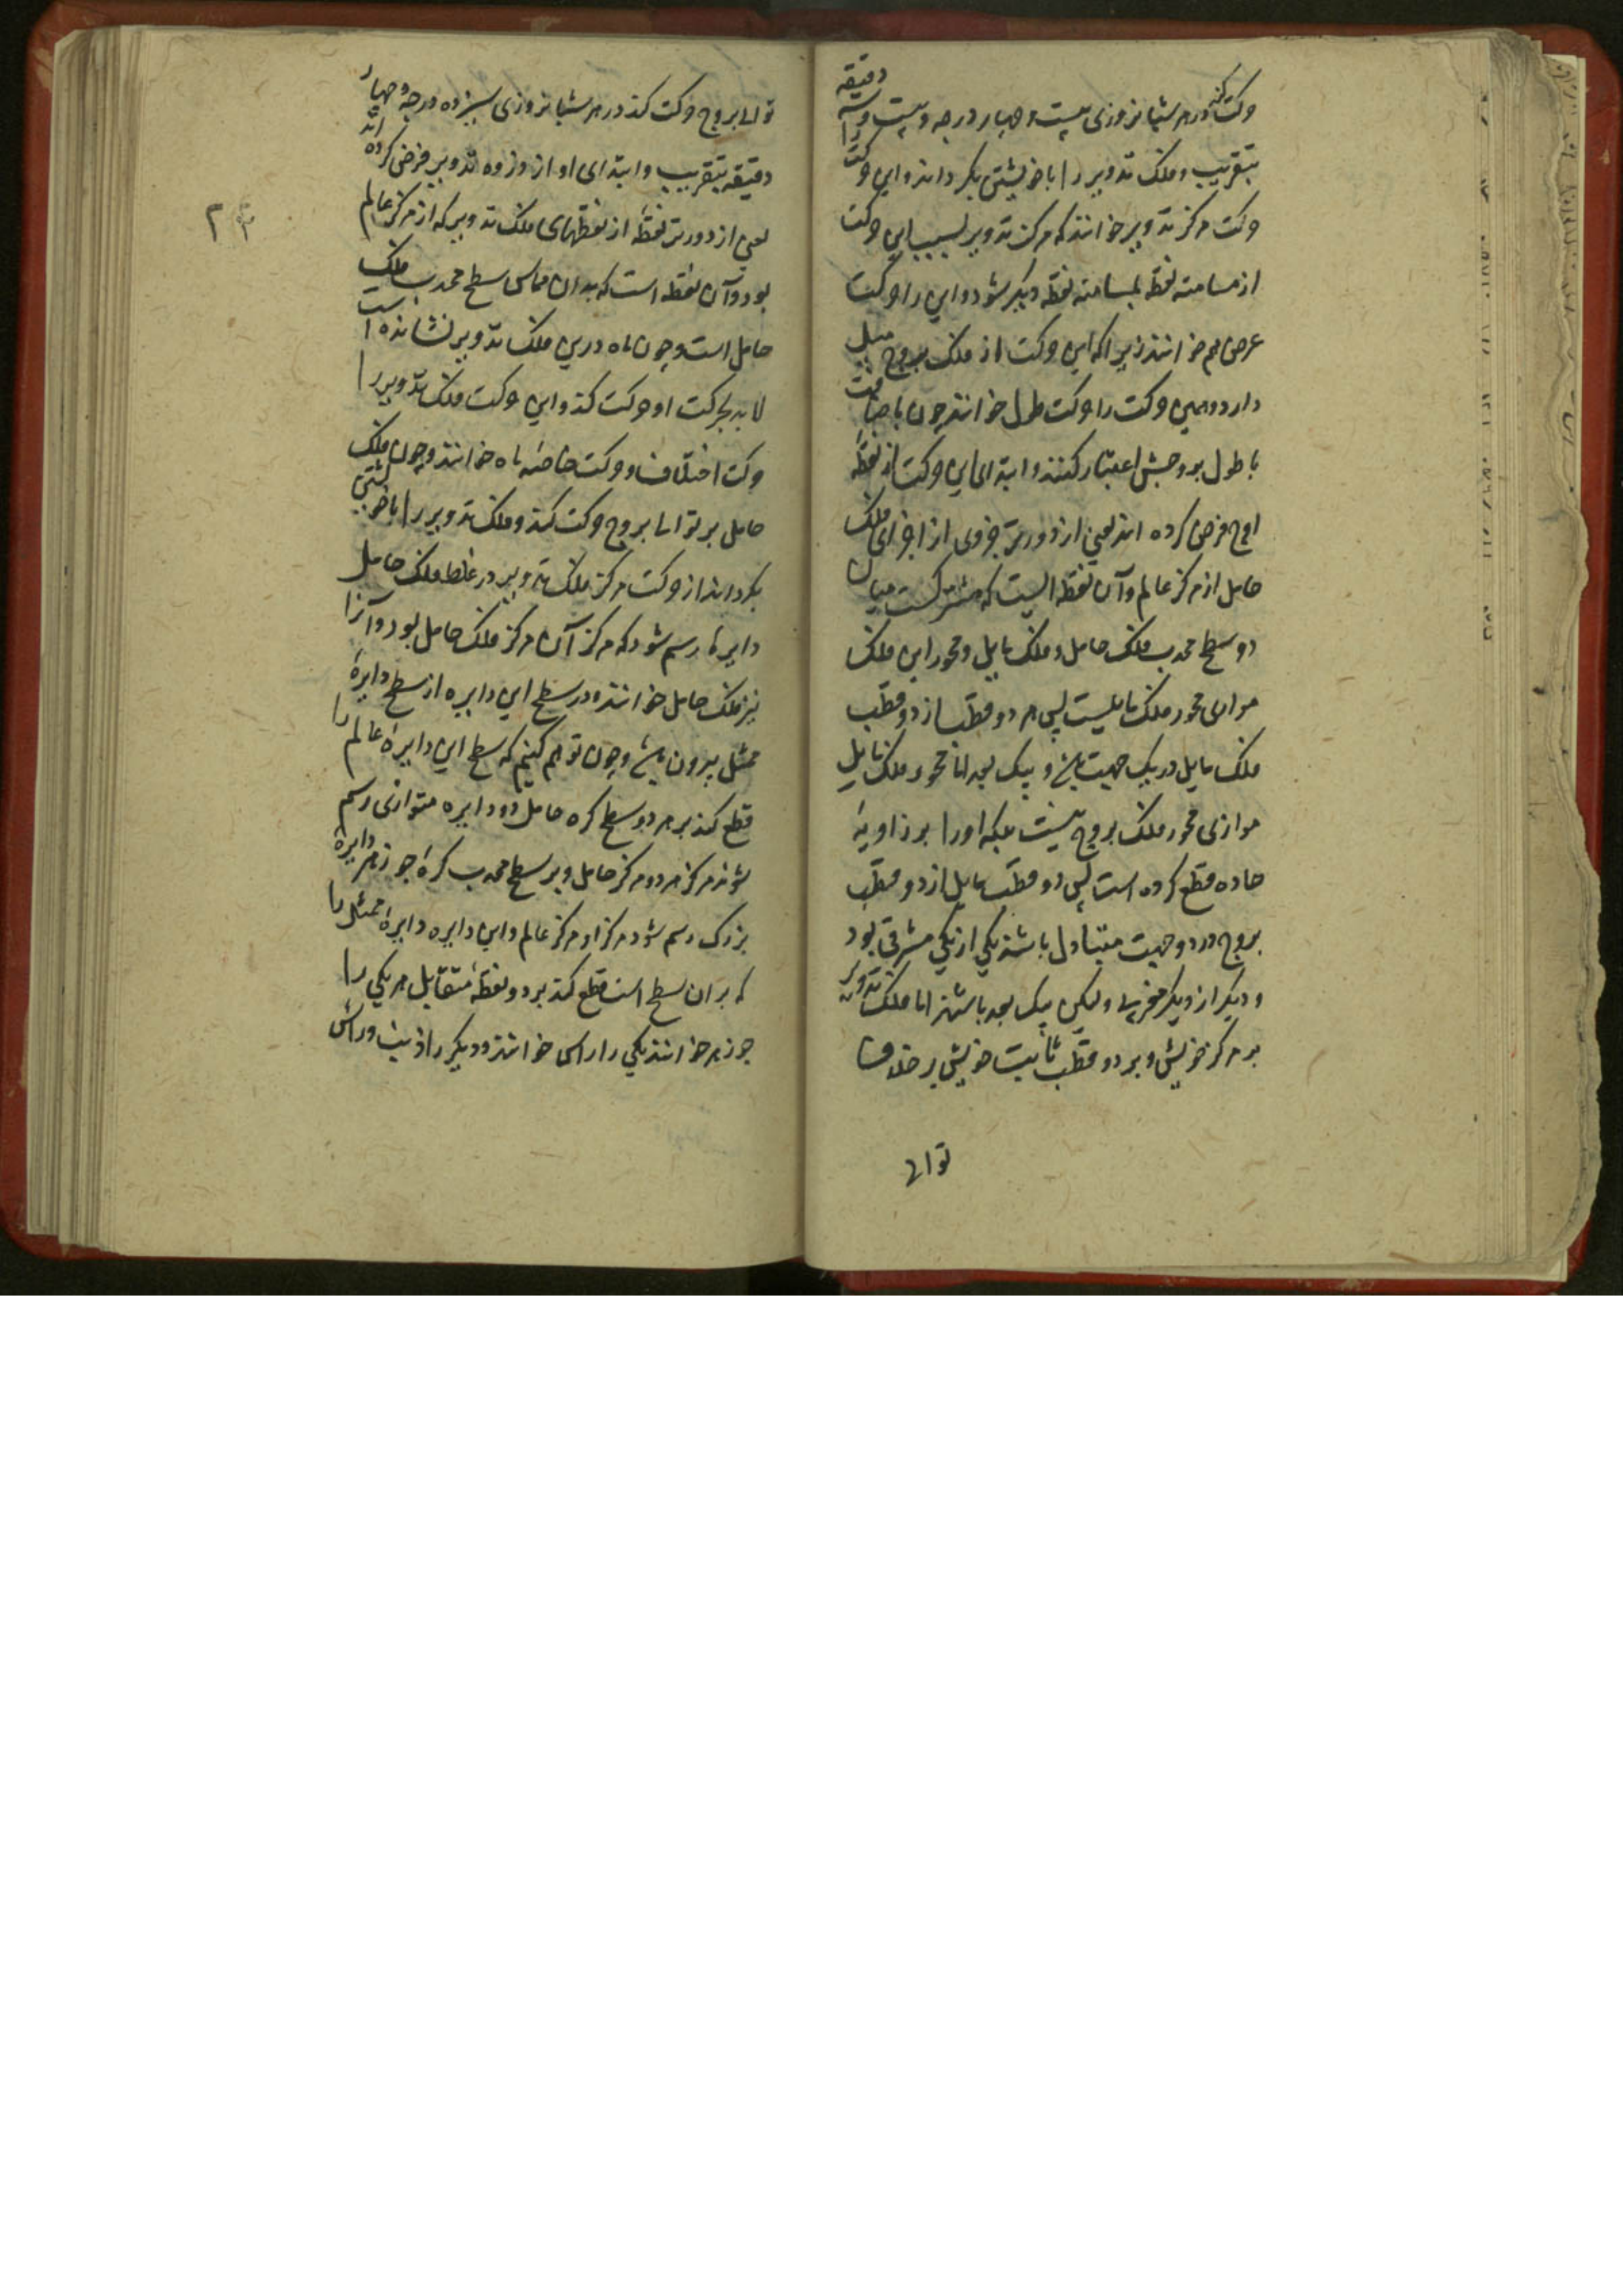 حرکت کند در هر شبانروزی بیست و چهار درجه و بیست و سه دقیقه
بتقریب و فلک تدویر را با خویشتن بگرداند و این حرکت را
حرکت مرکز تدویر خوانند که مرکز تدویر بسبب این حرکت
از مسامته نقطه بمسامته نقطه دیگر شود و این را حرکت
عرض هم خوانند زیرا که این حرکت از فلک بروج میل
دارد و همین حرکت را حرکت طول خوانند چون باضافت
با طول بروجش اعتبار کنند و ابتدای این حرکت از نقطهٔ
اوج فرض کرده اند یعنی از دورتر جزوی از اجزای فلک
حامل از مرکز عالم و آن نقطه ایست که مشترکست میان
دو سطح محدب فلک حامل و فلک مایل و محور این فلک
موازی محور فلک مایلست پس هر دو قطب از دو قطب
فلک مایل در یک جهت باشد و بیک بعد اما محور فلک مایل
موازی محور فلک بروج نیست بلکه او را بر زاویهٔ
حاده قطع کرده است پس دو قطب مایل از دو قطب
بروج در دو جهت متبادل باشند یکی از یکی مشرقی بود
و دیگر از دیگر مغربی ولیکن بیک بعد باشند اما فلک تدویر
بر مرکز خویش و بر دو قطب ثابت خویش بر خلاف
توالی
۲۴
توالی بروج حرکت کند در هر شبانروزی سیزده درجه و چهار
دقیقه بتقریب و ابتدای او از ذروه تدویر فرض کرده اند
یعنی از دورتر نقطهٔ از نقطهای فلک تدویر که از مرکز عالم
بود و آن نقطه است که بدان مماس سطح محدب فلک
حامل است و چون ماه درین فلک تدویر نشانده است
لابد بحرکت او حرکت کند و این حرکت فلک تدویر را
حرکت اختلاف و حرکت خاصهٔ ماه خوانند و چون فلک
حامل بر توالی بروج حرکت کند و فلک تدویر را با خویشتن
بگرداند از حرکت مرکز فلک تدویر در غلظ فلک حامل
دایرهٔ رسم شود که مرکز آن مرکز فلک حامل بود و آنرا
نیز فلک حامل خوانند و در سطح این دایره از سطح دایرهٔ
ممثل بیرون باشد و چون توهم کنیم که سطح این دایره عالم را
قطع کند بر هر دو سطح کره حامل دو دایره متوازی رسم
شوند مرکز هر دو مرکز حامل و بر سطح محدب کرهٔ جوزهر دایرهٔ
بزرک رسم شود مرکز او مرکز عالم و این دایره دایرهٔ ممثل را
که بر ان سطح است قطع کند بر دو نقطهٔ متقابل هر یکی را
جوزهر خوانند یکی را راس خوانند و دیگر را ذنب و راس